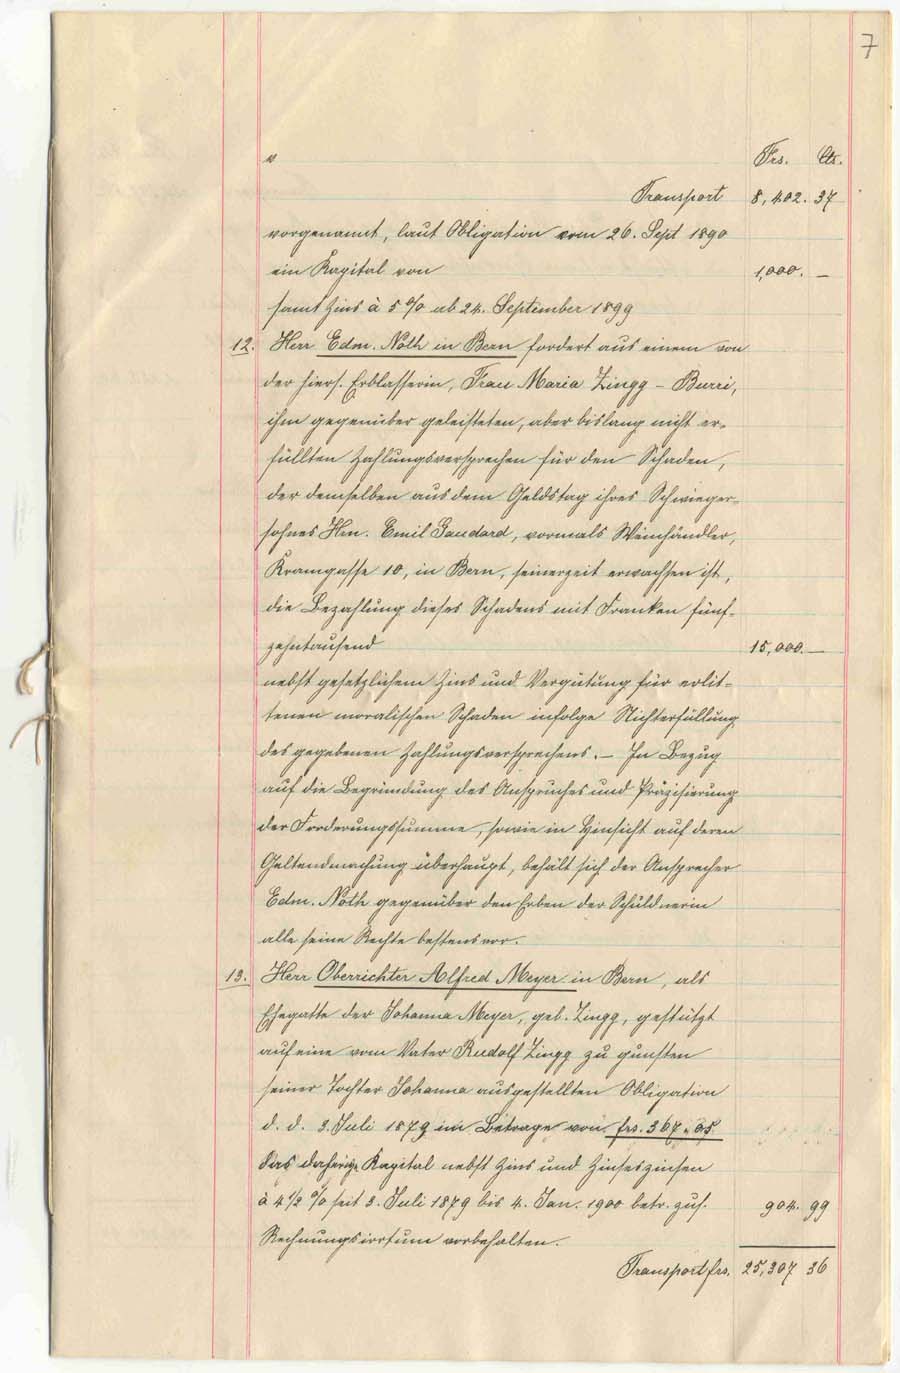 7
Frs. Cts.
Transport 8,402. 37
vorgenannt, laut Obligation vom 26. Sept 1890
ein Kapital von 1,000. —
samt Zins à 5 % ab 24. September 1899
12. Herr Edm. Noth in Bern fordert aus einem von
der hiers. Erblasserin, Frau Maria Zingg - Burri,
ihm gegenüber geleisteten, aber bislang nicht er-
füllten Zahlungsversprechen für den Schaden,
der demselben aus dem Geldstag ihres Schwieger-
sohnes Hrn. Emil Gaudard, vormals Weinhändler,
Kramgasse 10, in Bern, seinerzeit erwachsen ist,
die Bezahlung dieses Schadens mit Franken fünf-
zehntausend 15,000. —
nebst gesetzlichem Zins und Vergütung für erlit-
tenen moralischen Schaden infolge Nichterfüllung
des gegebenen Zahlungsversprechens. — In Bezug
auf die Begründung des Anspruches und Präzisierung
der Forderungssumme, sowie in Hinsicht auf deren
Geltendmachung überhaupt, behält sich der Ansprecher
Edm. Noth gegenüber den Erben der Schuldnerin
alle seine Rechte bestens vor.
13. Herr Oberrichter Alfred Meyer in Bern, als
Ehegatte der Johanna Meyer, geb. Zingg, gestützt
auf eine vom Vater Rudolf Zingg zu gunsten
seiner Tochter Johanna ausgestellten Obligation
d. d. 3. Juli 1879 im Betrage von frs. 367. 05
Das daherige Kapital nebst Zins und Zinseszinsen
à 4½ % seit 3. Juli 1879 bis 4. Jan. 1900 betr. zus. 904. 99
Rechnungsirrtum vorbehalten.
Transport frs. 25,307 36